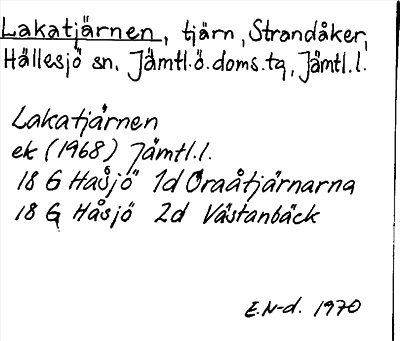 Lakatjärnen, tjärn, Strandåker,
Hällesjö sn. Jämtl.ö.doms.tg, Jämtl.l.
Lakatjärnen
ek (1968) Jämtl.l.
18 G Håsjö 1d Oraåtjärnarna
18 G Håsjö 2d Västanbäck
E.N-d. 1970